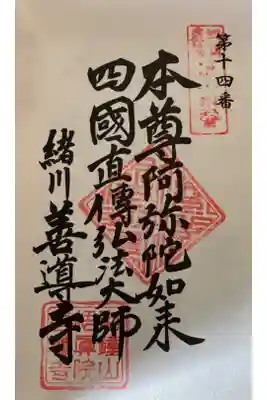 第十四番
本尊阿弥陀如来
四國直傳弘法大師
緒川善導寺